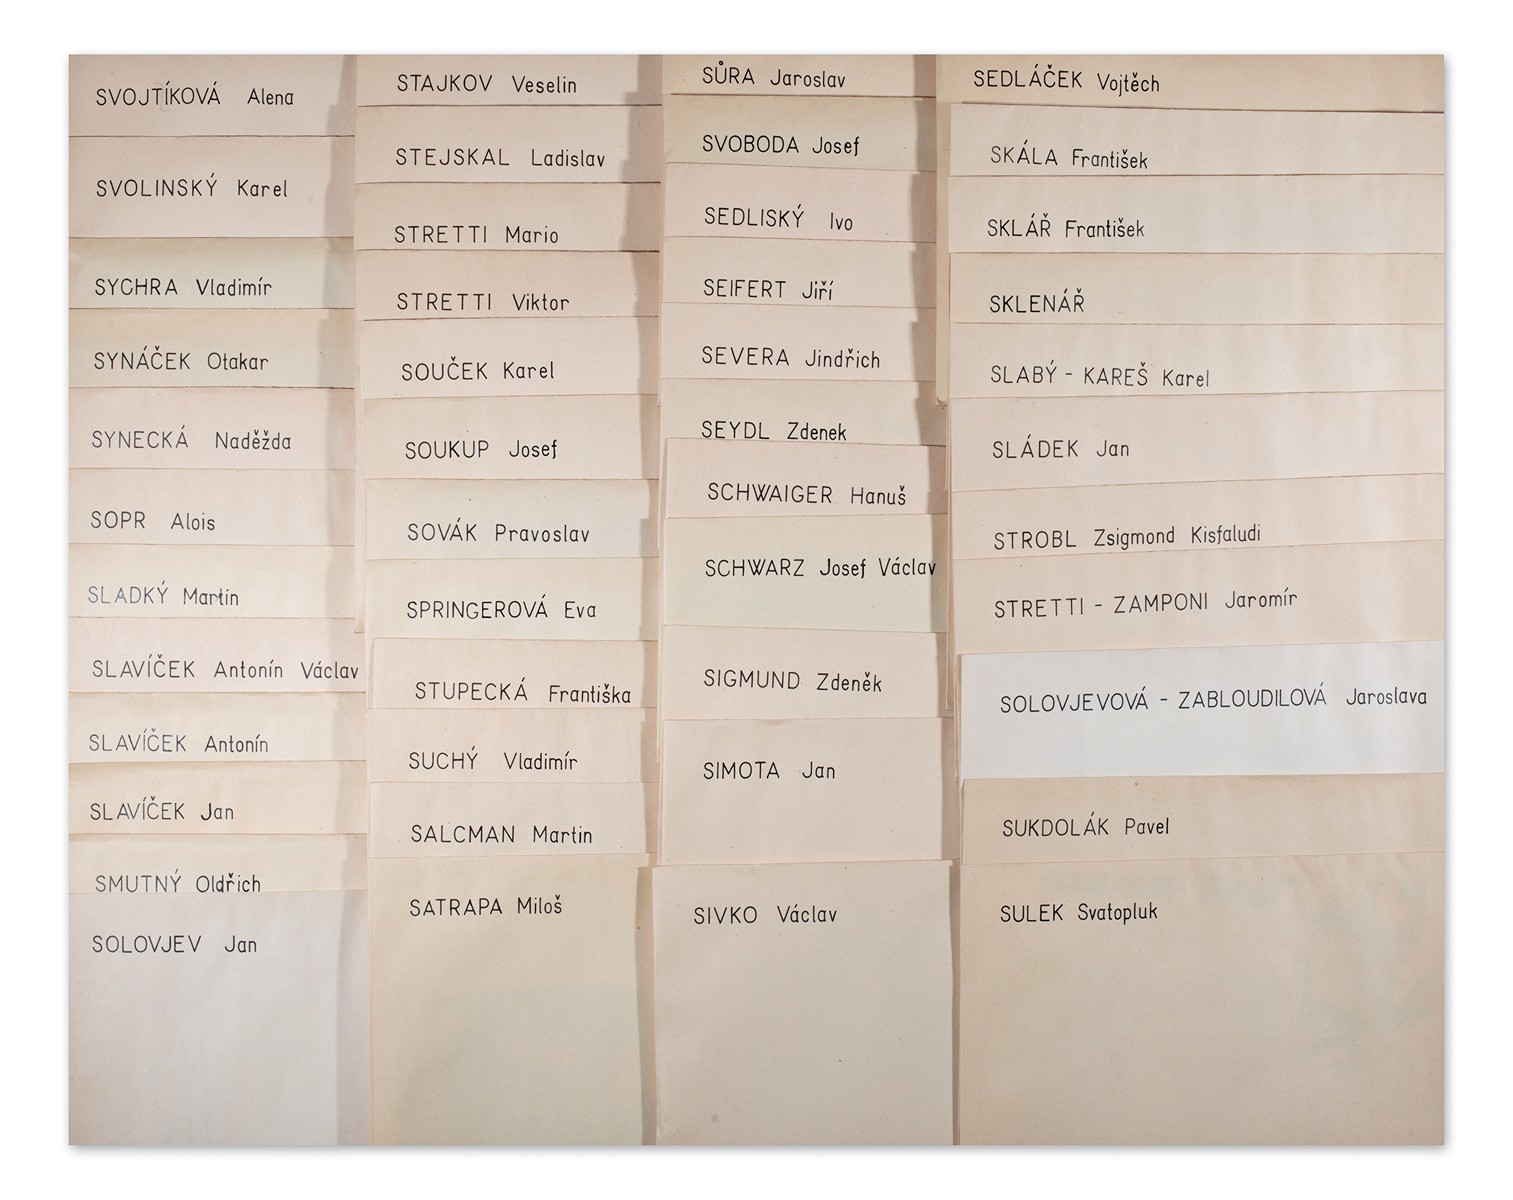 SVOJTÍKOVÁ Alena
SVOLINSKÝ Karel
SYCHRA Vladimír
SYNÁČEK Otakar
SYNECKÁ Naděžda
SOPR Alois
SLADKÝ Martin
SLAVÍČEK Antonín Václav
SLAVÍČEK Antonín
SLAVÍČEK Jan
SMUTNÝ Oldřich
SOLOVJEV Jan
STAJKOV Veselin
STEJSKAL Ladislav
STRETTI Mario
STRETTI Viktor
SOUČEK Karel
SOUKUP Josef
SOVÁK Pravoslav
SPRINGEROVÁ Eva
STUPECKÁ Františka
SUCHÝ Vladimír
SALCMAN Martin
SATRAPA Miloš
SŮRA Jaroslav
SVOBODA Josef
SEDLISKÝ Ivo
SEIFERT Jiří
SEVERA Jindřich
SEYDL Zdenek
SCHWAIGER Hanuš
SCHWARZ Josef Václav
SIGMUND Zdeněk
SIMOTA Jan
SIVKO Václav
SEDLÁČEK Vojtěch
SKÁLA František
SKLÁŘ František
SKLENÁŘ
SLABÝ - KAREŠ Karel
SLÁDEK Jan
STROBL Zsigmond Kisfaludi
STRETTI - ZAMPONI Jaromír
SOLOVJEVOVÁ - ZABLOUDILOVÁ Jaroslava
SUKDOLÁK Pavel
SULEK Svatopluk